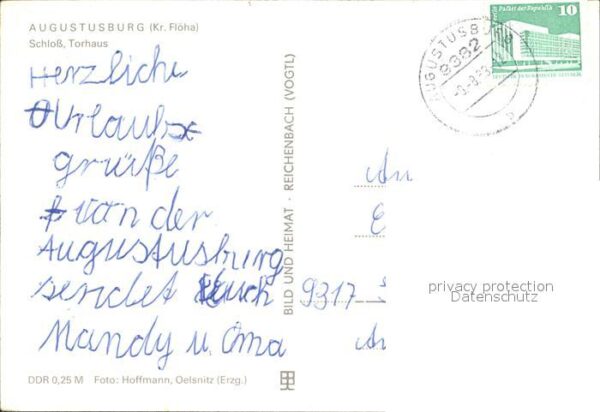 AUGUSTUSBURG (Kr. Flöha)
Schloß, Torhaus
Herzliche
Urlaubs
grüße
von der
Augustusburg
sendet Euch
Mandy u. Oma
DDR 0,25 M Foto: Hoffmann, Oelsnitz (Erzg.)
BILD UND HEIMAT · REICHENBACH (VOGTL)
AUGUSTUSBURG
9382
Berlin, Palast der Republik
10
An
E
9317
privacy protection
Datenschutz